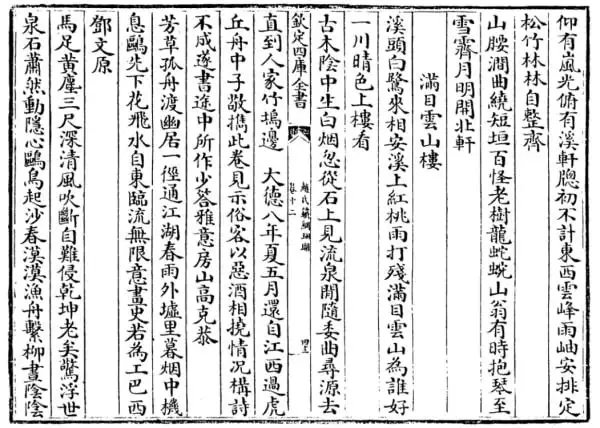 仰有嵐光俯有溪軒牕初不計東西雲峰雨岫安排定
松竹林林自整齊
山腰澗曲繞短垣百怪老樹龍蛇蜿山翁有時抱琴至
雪霽月明開北軒
滿目雲山樓
溪頭白鷺來相安溪上紅桃雨打殘滿目雲山為誰好
一川晴色上樓看
古木陰中生白烟忽從石上見流泉閒隨委曲尋源去
欽定四庫全書
趙氏鐵網珊瑚
卷十二
直到人家竹塢邊　大德八年夏五月還自江西過虎
丘舟中子敬攜此卷見示俗客以惡酒相撓情況搆詩
不成遂書途中所作少答雅意房山高克恭
芳草孤舟渡幽居一徑通江湖春雨外墟里暮烟中機
息鷗先下花飛水自東臨流無限意畫史若為工巴西
鄧文原
馬足黄塵三尺深清風吹斷自難侵乾坤老矣驚浮世
泉石蕭然動隱心鷗鳥起沙春漠漠漁舟繫柳晝陰陰